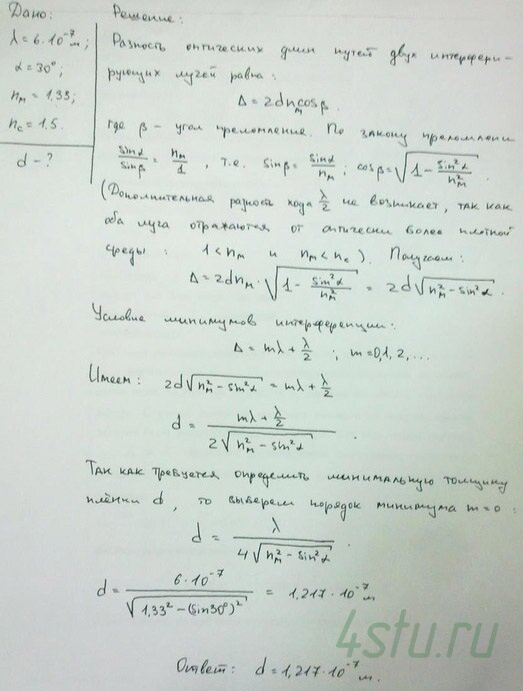 Дано:
λ = 6·10⁻⁷ м;
α = 30°;
nм = 1,33;
nс = 1.5.
d - ?
Решение:
Разность оптических длин путей двух интерфери-
рующих лучей равна:
Δ = 2dnмcosβ.
где β - угол преломления. По закону преломлени
sinα/sinβ = nм/1, т.е. sinβ = sinα/nм; cosβ = √(1 - sin²α/nм²).
(Дополнительная разность хода λ/2 не возникает, так как
оба луча отражаются от оптически более плотной
среды: 1 < nм и nм < nс). Получаем:
Δ = 2dnм·√(1 - sin²α/nм²) = 2d√(nм² - sin²α).
Условие минимумов интерференции:
Δ = mλ + λ/2; m = 0,1,2,...
Имеем: 2d√(nм² - sin²α) = mλ + λ/2
d = (mλ + λ/2)/(2√(nм² - sin²α)).
Так как требуется определить минимальную толщину
плёнки d, то выберем порядок минимума m = 0:
d = λ/(4√(nм² - sin²α)).
d = 6·10⁻⁷/√(1,33² - (sin30°)²) = 1,217·10⁻⁷ м
4stu.ru
Ответ: d = 1,217·10⁻⁷ м.